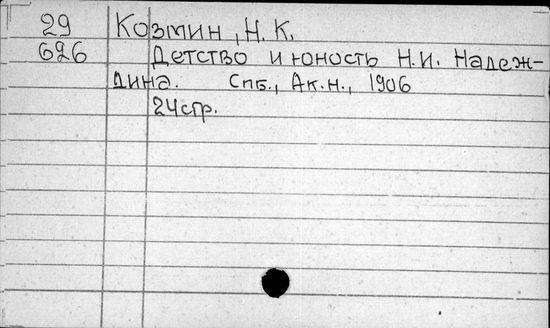 29 Козмин, Н. К.
626 Детство и юность Н.И. Надеж-
дина. Спб., Ак.н., 1906
24стр.